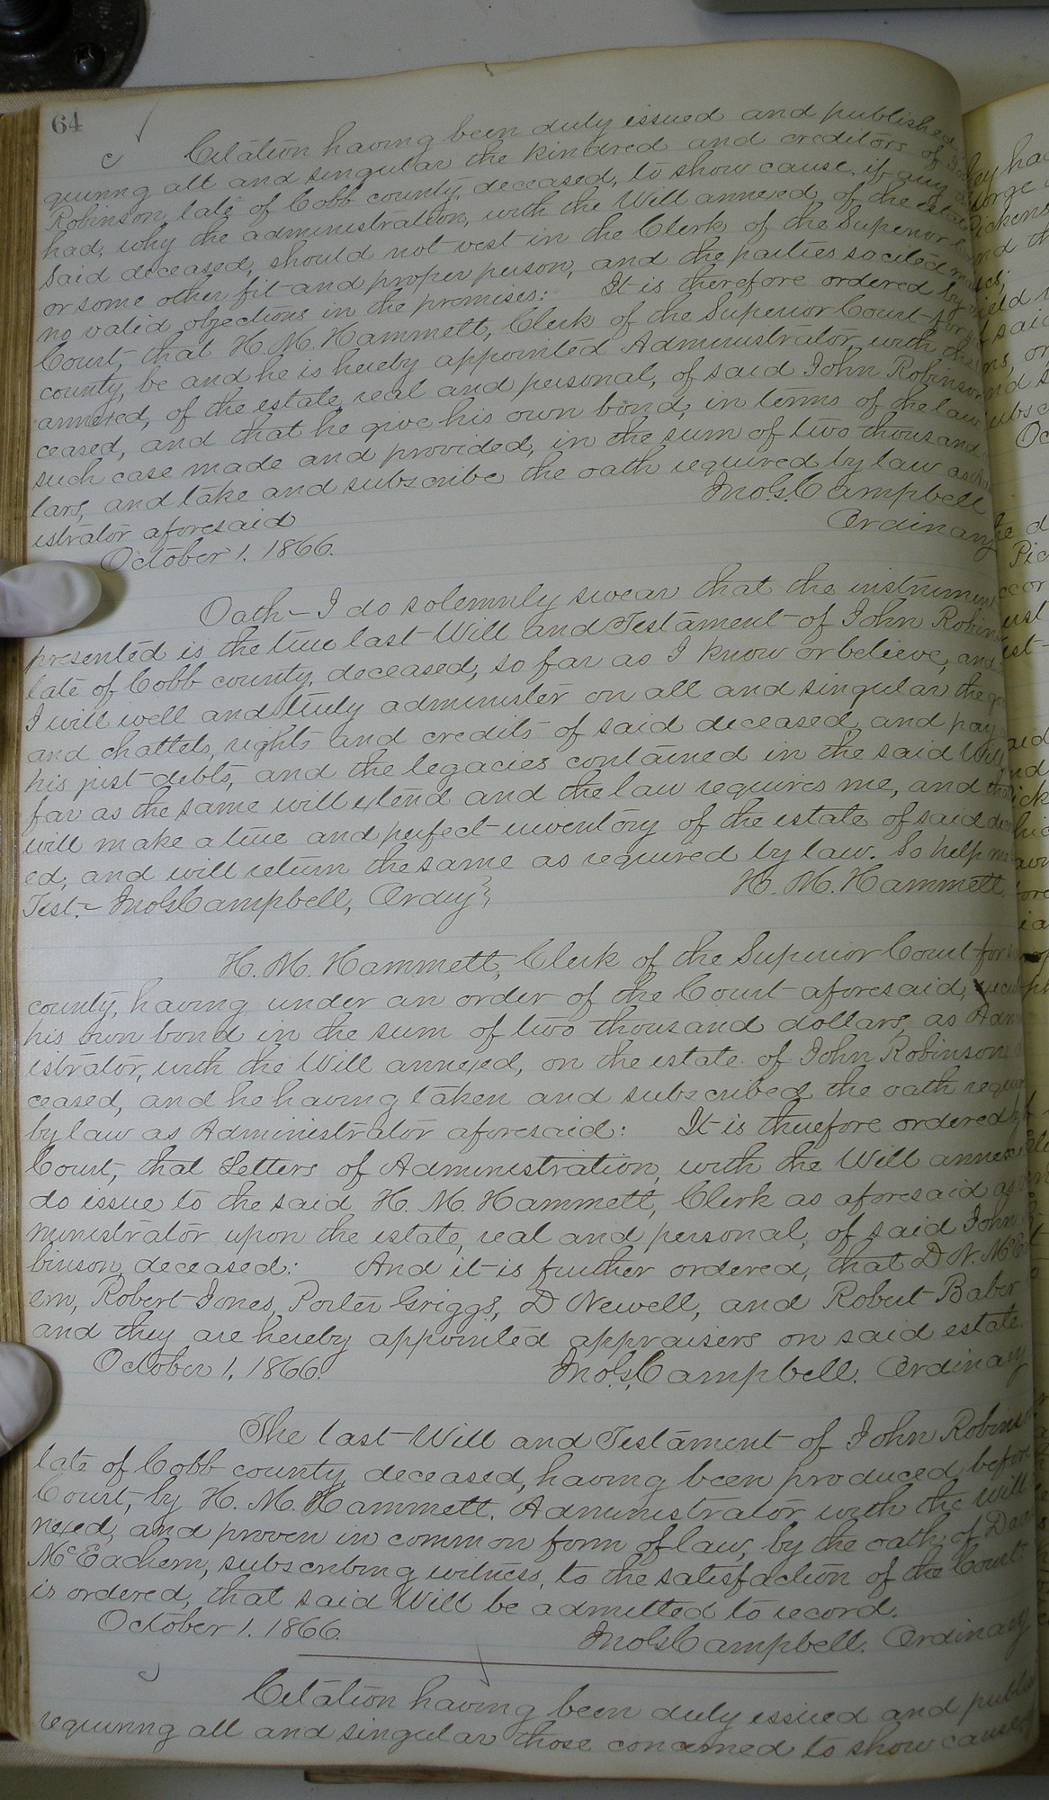 64
Citation having been duly issued and published
quiring all and singular the kindred and creditors of
Robinson, late of Cobb county, deceased, to show cause, if any
had, why the administration, with the Will annexed, of the estate
said deceased, should not vest in the Clerk of the Superior
or some other fit and proper person, and the parties so cited
no valid objections in the premises: It is therefore ordered by
Court, that H. M. Hammett, Clerk of the Superior Court for
county, be and he is hereby appointed Administrator, with the
annexed, of the estate, real and personal, of said John Robinson
ceased, and that he give his own bond, in terms of the law
such case made and provided, in the sum of two thousand
lars, and take and subscribe the oath required by law as
istrator aforesaid
Jno. G. Campbell
October 1, 1866.
Ordinary
Oath – I do solemnly swear that the instrument
presented is the true last Will and Testament of John Robin
late of Cobb county, deceased, so far as I know or believe, and
I will well and truly administer on all and singular the
and chattels, rights and credits of said deceased, and pay
his just debts, and the legacies contained in the said Will
far as the same will extend and the law requires me, and
will make a true and perfect inventory of the estate of said
ed, and will return the same as required by law. So help me
H. M. Hammett
Test. – Jno. G. Campbell, Ordny
H. M. Hammett, Clerk of the Superior Court for
county, having under an order of the Court aforesaid,
his own bond in the sum of two thousand dollars, as Adm
istrator, with the Will annexed, on the estate of John Robinson
ceased, and he having taken and subscribed the oath requir
by law as Administrator aforesaid: It is therefore ordered by
Court, that Letters of Administration, with the Will annexed
do issue to the said H. M. Hammett, Clerk as aforesaid as
ministrator upon the estate, real and personal, of said John
binson, deceased: And it is further ordered, that D. N. McE
ern, Robert Jones, Porter Griggs, D Newell, and Robert Baber
and they are hereby appointed appraisers on said estate.
October 1, 1866.
Jno. G. Campbell. Ordinary
The last Will and Testament of John Robins
late of Cobb county, deceased, having been produced before
Court, by H. M. Hammett, Administrator with the Will
nexed, and proven in common form of law, by the oath of
McEachern, subscribing witness, to the satisfaction of the Court.
is ordered, that said Will be admitted to record.
October 1, 1866.
Jno. G. Campbell. Ordinary
Citation having been duly issued and publis
requiring all and singular those concerned to show cause